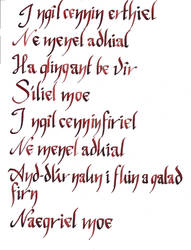 I ngil cennin erthiel
Ne menel aduial
Ha glingant be vîr
Síliel moe
I ngil cennin firiel
Ne menel aduial
And-dúr naun i fuin a galad
firn
Naegriel moe